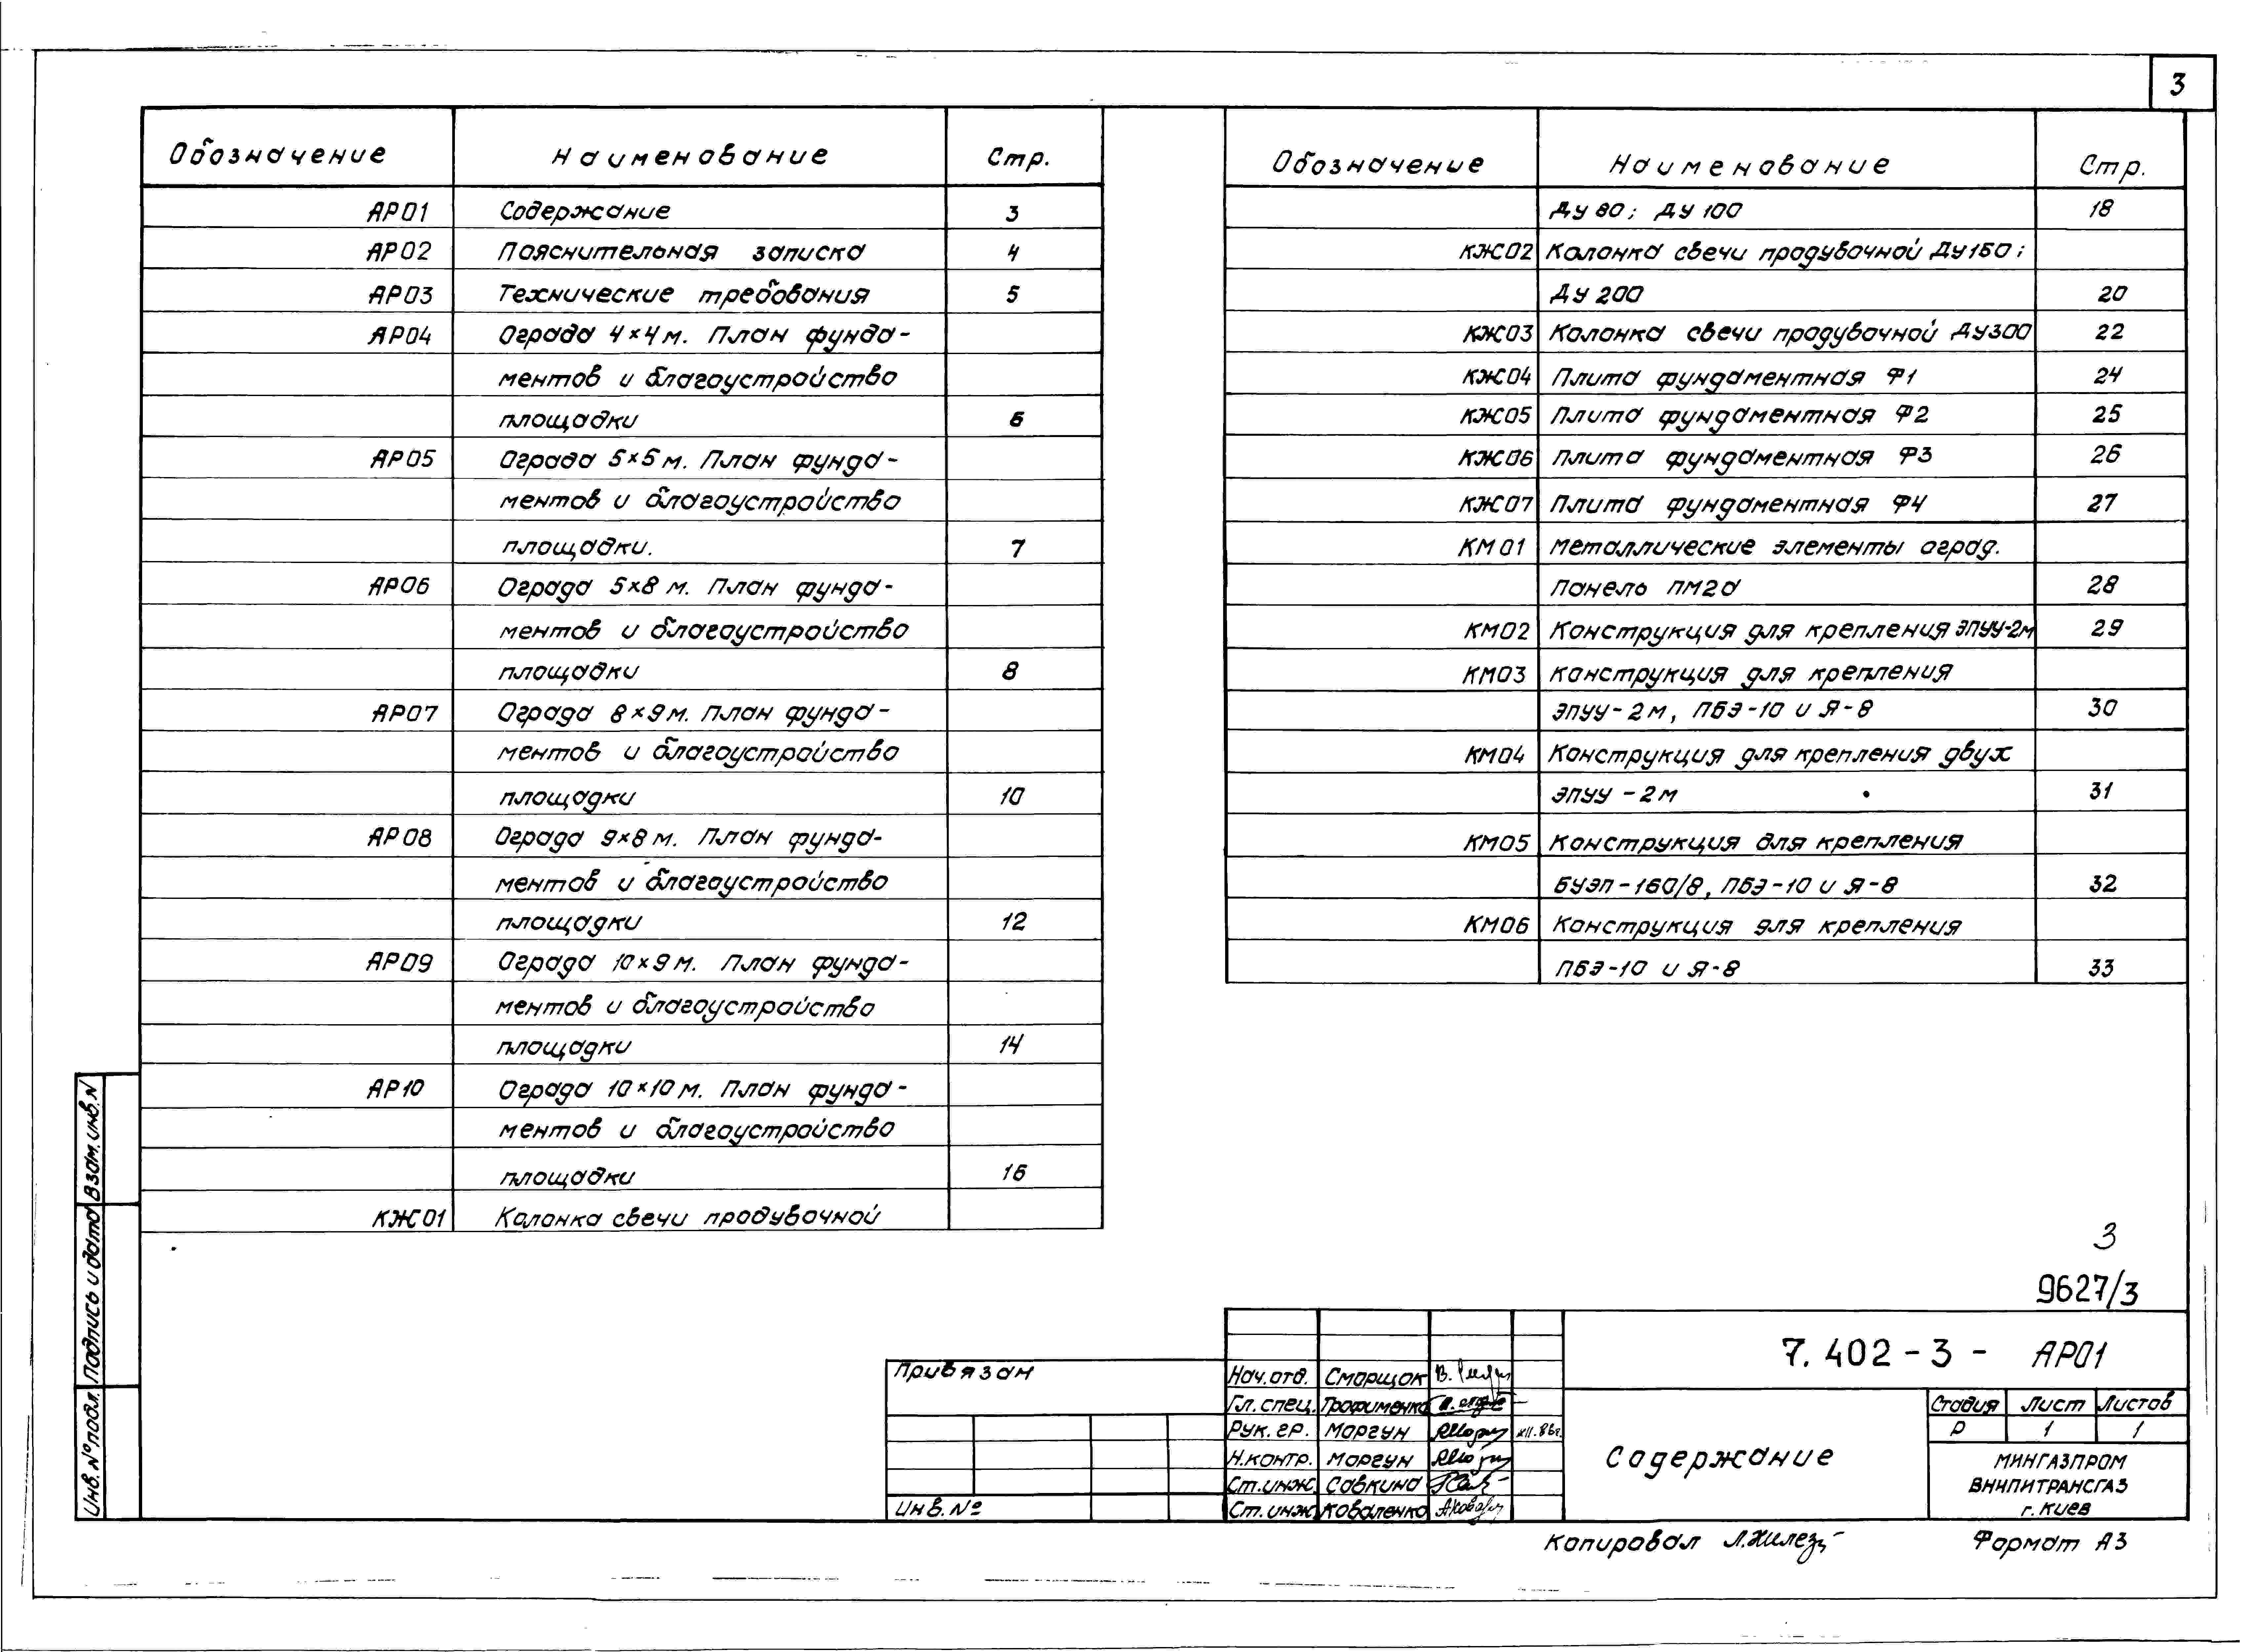 3
Обозначение Наименование Стр.
АР01 Содержание 3
АР02 Пояснительная записка 4
АР03 Технические требования 5
АР04 Ограда 4×4 м. План фунда-
ментов и благоустройство
площадки 6
АР05 Ограда 5×5 м. План фунда-
ментов и благоустройство
площадки. 7
АР06 Ограда 5×8 м. План фунда-
ментов и благоустройство
площадки 8
АР07 Ограда 8×9 м. План фунда-
ментов и благоустройство
площадки 10
АР08 Ограда 9×8 м. План фунда-
ментов и благоустройство
площадки 12
АР09 Ограда 10×9 м. План фунда-
ментов и благоустройство
площадки 14
АР10 Ограда 10×10 м. План фунда-
ментов и благоустройство
площадки 16
КЖ01 Колонка свечи продувочной
Обозначение Наименование Стр.
Ду 80; Ду 100 18
КЖ02 Колонка свечи продувочной Ду150;
Ду 200 20
КЖ03 Колонка свечи продувочной Ду300 22
КЖ04 Плита фундаментная Ф1 24
КЖ05 Плита фундаментная Ф2 25
КЖ06 Плита фундаментная Ф3 26
КЖ07 Плита фундаментная Ф4 27
КМ01 Металлические элементы оград.
Панель ПМ2а 28
КМ02 Конструкция для крепления ЭПУУ-2м 29
КМ03 Конструкция для крепления
ЭПУУ-2м, ПБЭ-10 и Я-8 30
КМ04 Конструкция для крепления двух
ЭПУУ-2м 31
КМ05 Конструкция для крепления
БУЭП-160/8, ПБЭ-10 и Я-8 32
КМ06 Конструкция для крепления
ПБЭ-10 и Я-8 33
3
9627/3
Взам. инв. N
Подпись и дата
Инв. № подл.
Привязан
Инв. №
Нач. отд. Сморщок
Гл. спец. Трофименко
Рук. гр. Моргун XII.86г.
Н.контр. Моргун
Ст. инж. Савкина
Ст. инж. Коваленко
7.402-3- АР01
Содержание
Стадия Лист Листов
Р 1 1
МИНГАЗПРОМ
ВНИПИТРАНСГАЗ
г. Киев
Копировал
Формат А3